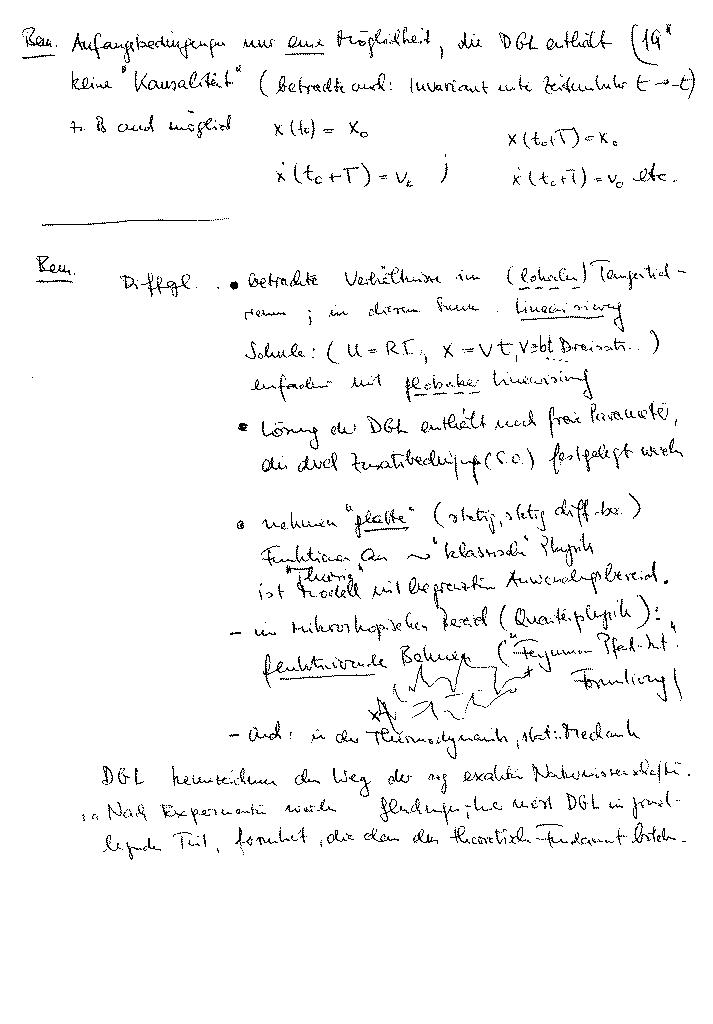 Bem. Anfangsbedingungen nur eine Möglichkeit, die DGL enthält
keine "Kausalität" (betrachte auch: Invariant unter Zeitumkehr t → -t)
z. B auch möglich x(t₀) = x₀ x(t₀+T) = x₀
ẋ(t₀+T) = v₀ ; ẋ(t₀+T) = v₀ etc.
Bem. Diffgl. • betrachte Verhältnisse im (lokalen) Tangential-
raum ; in diesem Sinne Linearisierung
Schule: (U = RI, x = vt, Dreisatz..)
einfacher mit globaler Linearisierung
• Lösung der DGL enthält noch freie Parameter,
die durch Zusatzbedingung (s.o.) festgelegt werden
• nehmen "glatte" (stetig, stetig diff.bar)
Funktionen an "klassische" Physik
"Theorie"
ist Modell mit begrenztem Anwendungsbereich.
- im mikroskopischen Bereich (Quantenphysik):
fluktuierende Bahnen ("Feynman Pfad-Int."
Formulierung)
- Auch: in der Thermodynamik, stat. Mechanik
DGL kennzeichnen den Weg der sog exakten Naturwissenschaften.
Nach Experimenten werden DGL in grund-
legenden Teil, formuliert, die dann das theoretische Fundament bilden.